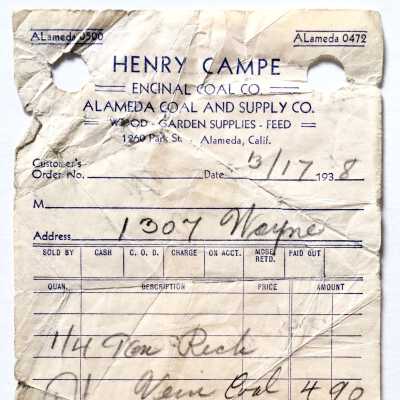 ALameda 0500 ALameda 0472
HENRY CAMPE
ENCINAL COAL CO.
ALAMEDA COAL AND SUPPLY CO.
WOOD - GARDEN SUPPLIES - FEED
1260 Park St. Alameda, Calif.
Customer's
Order No. Date 3/17 1938
M
Address 1307 Wayne
SOLD BY CASH C. O. D. CHARGE ON ACCT. MDSE. RETD. PAID OUT
QUAN. DESCRIPTION PRICE AMOUNT
1/4 Ton Rich
Vein Coal 4 90